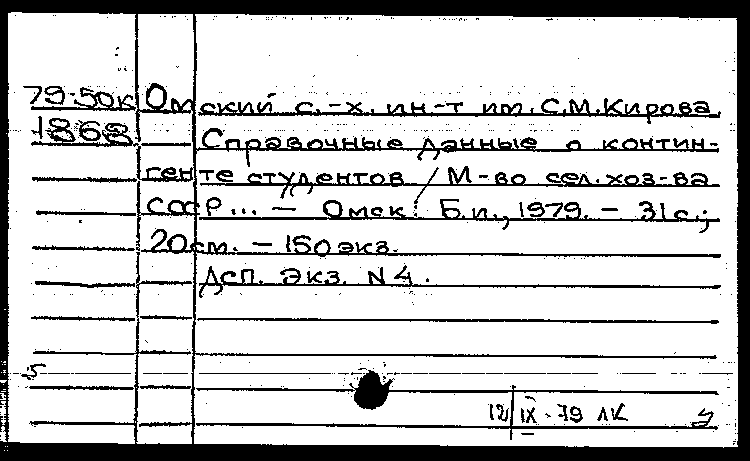 79-50к Омский с.-х. ин-т им. С.М.Кирова
1868 Справочные данные о контин-
генте студентов / М-во сел. хоз-ва
СССР... — Омск : Б.и., 1979. — 31 с.;
20 см. — 150 экз.
Дсп. Экз. N 4.
5
12/IX-79 ЛК